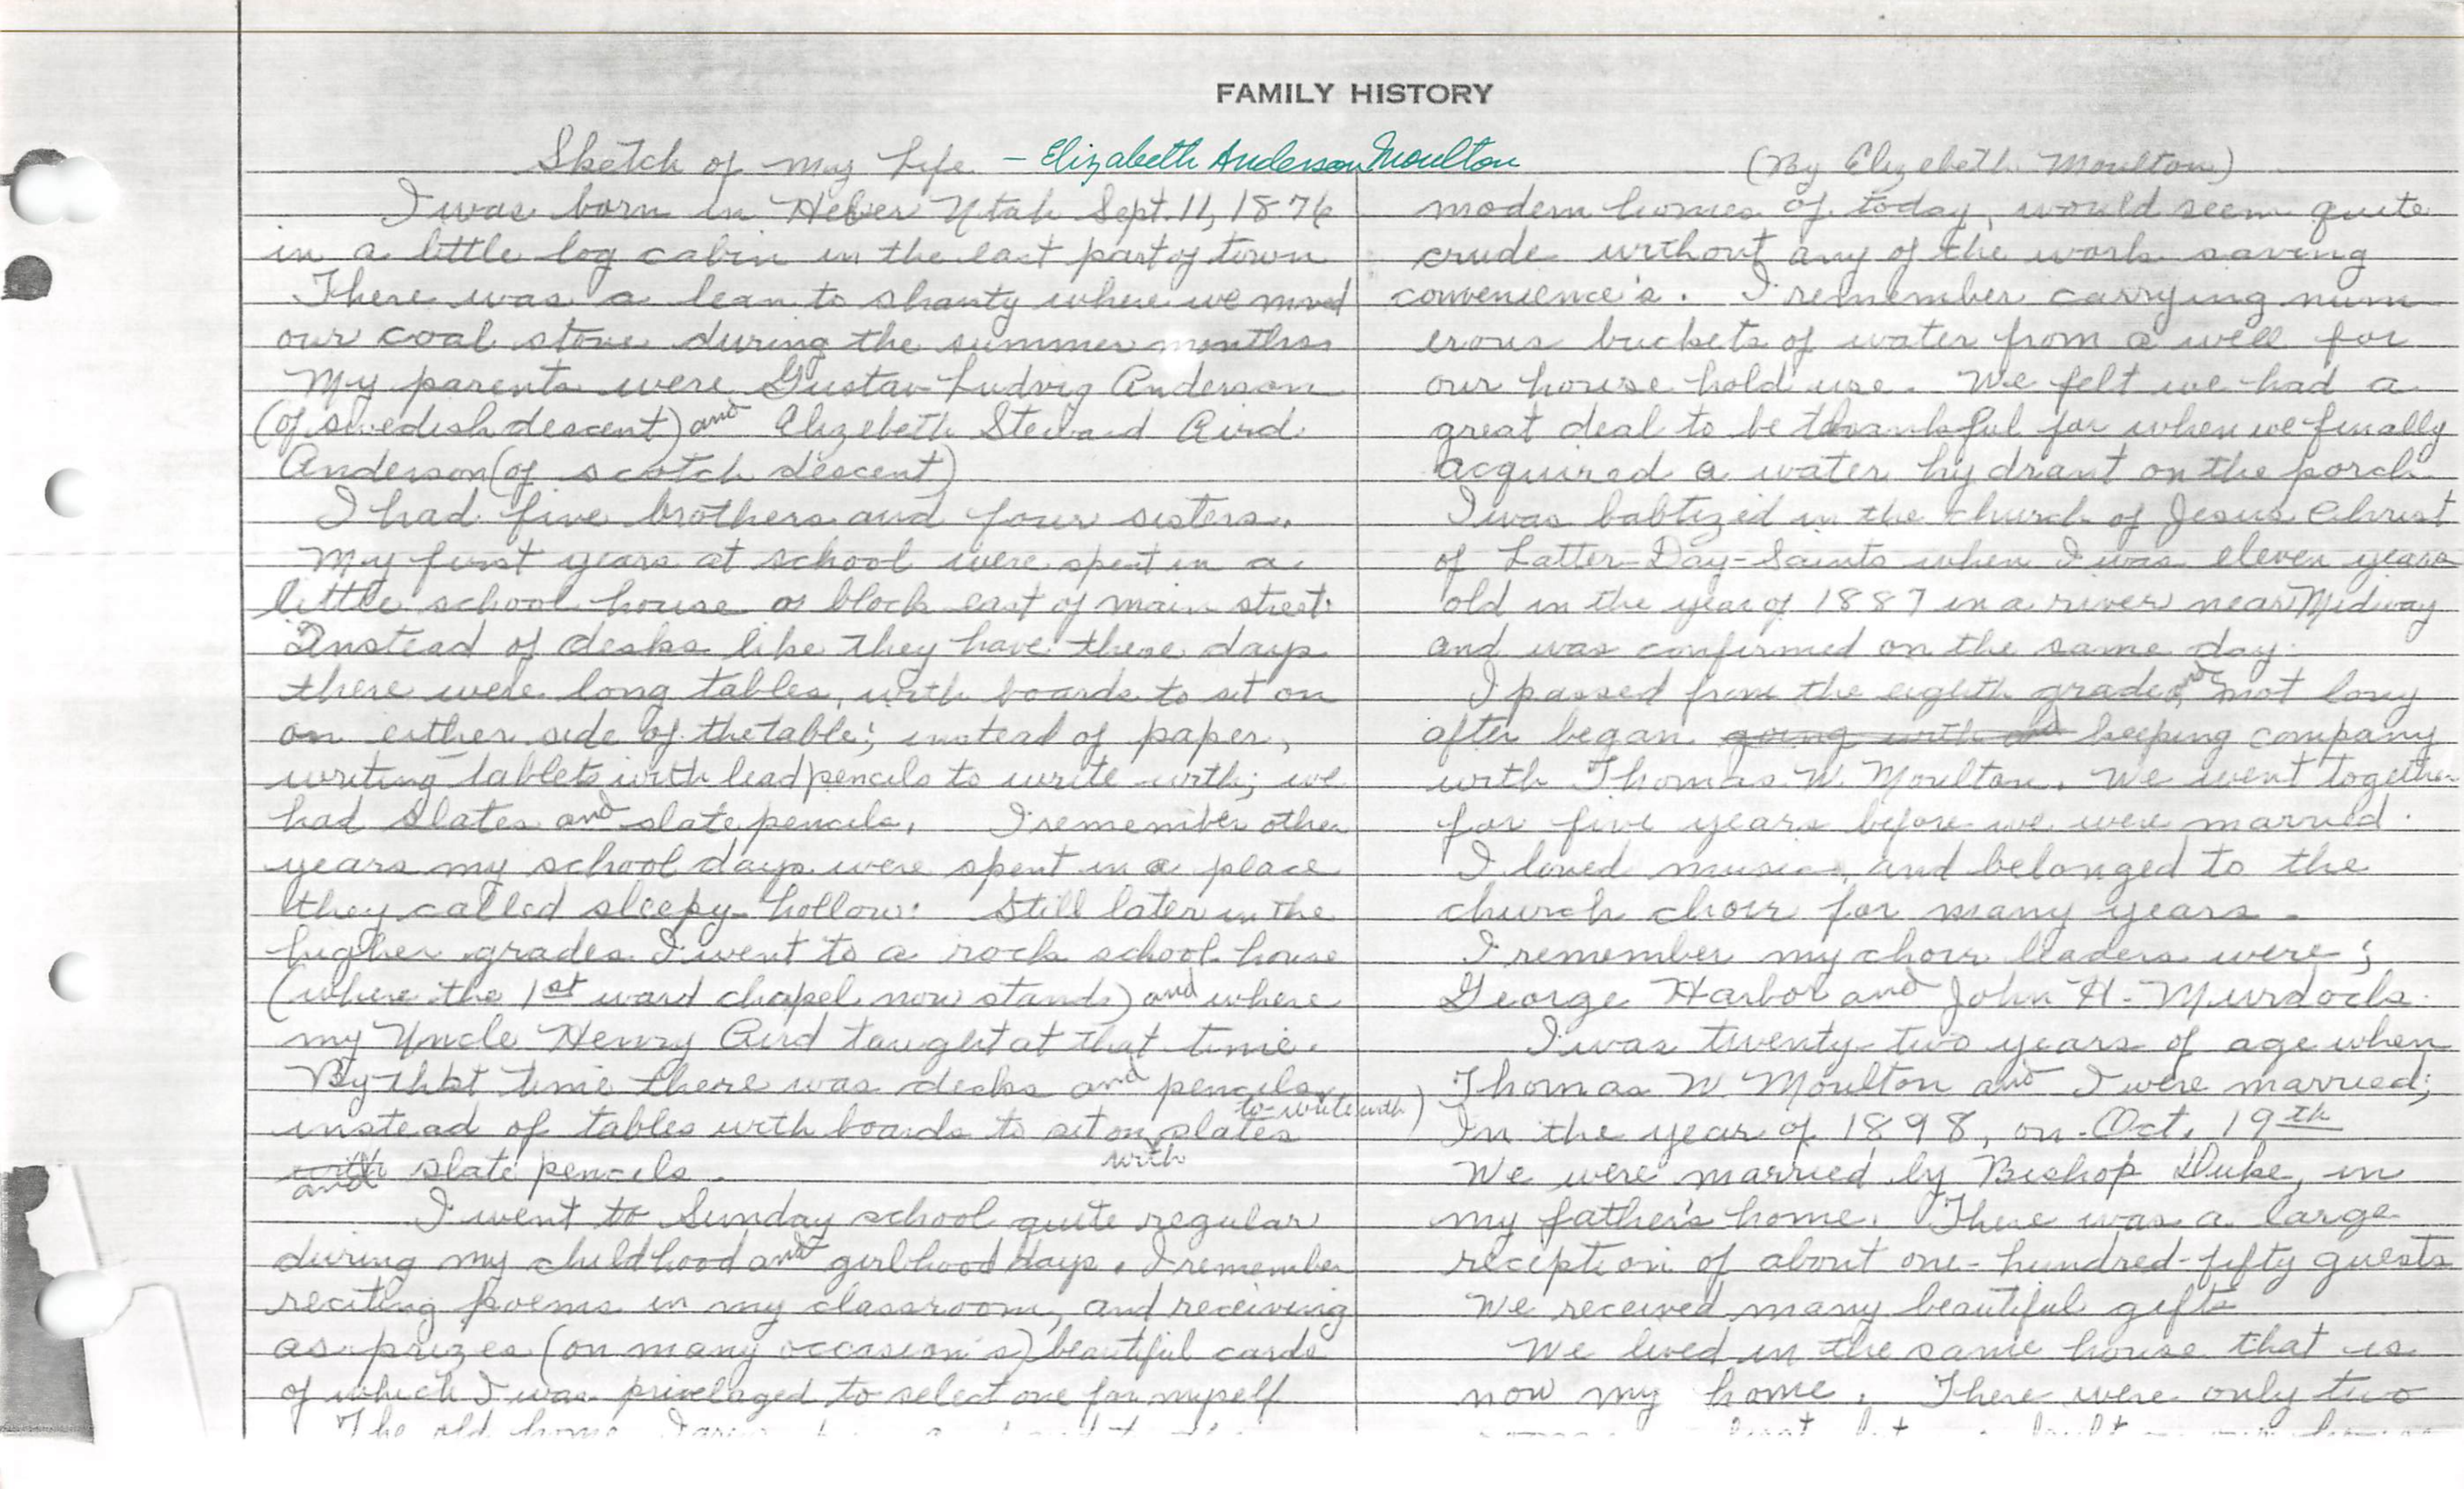 FAMILY HISTORY
Sketch of my Life – Elizabeth Anderson Moulton
I was born in Heber Utah Sept. 11, 1876
in a little log cabin in the east part of town
There was a lean to shanty where we moved
our coal stove during the summer months
My parents were Gustav Ludvig Anderson
(of swedish descent) and Elizebeth Steward Aird
Anderson (of scotch descent)
I had five brothers and four sisters.
My first years at school were spent in a
little school house a block east of main street.
Instead of desks like they have these days
there were long tables, with boards to sit on
on either side of the table; instead of paper,
writing tablets with lead pencils to write with; we
had slates and slate pencils. I remember other
years my school days were spent in a place
they called sleepy-hollow. Still later in the
higher grades I went to a rock school house
(where the 1st ward chapel now stands) and where
my Uncle Henry Aird taught at that time.
By that time there was desks and pencils
instead of tables with boards to sit on, slates to write with)
with and slate pencils. with
I went to Sunday school quite regular
during my childhood and girlhood days. I remember
reciting poems in my classroom, and receiving
as prizes (on many occasion's) beautiful cards
of which I was privelaged to select one for myself
The old home
(By Elizebeth Moulton)
modern homes of today, would seem quite
crude without any of the work saving
convenience's. I remember carrying num
erous buckets of water from a well for
our house hold use. We felt we had a
great deal to be thankful for when we finally
acquired a water hydrant on the porch.
I was babtized in the church of Jesus Christ
of Latter-Day-Saints when I was eleven years
old in the year of 1887 in a river near Midway
and was confirmed on the same day.
I passed from the eighth grade, and not long
after began going with and keeping company
with Thomas W. Moulton. We went together
for five years before we were married.
I loved music, and belonged to the
church choir for many years.
I remember my choir leaders were;
George Harbor and John H. Murdock.
I was twenty-two years of age when
Thomas W Moulton and I were married;
In the year of 1898, on Oct. 19th
We were married by Bishop Duke, in
my father's home. There was a large
reception of about one-hundred-fifty guests
We received many beautiful gifts
We lived in the same house that is
now my home. There were only two